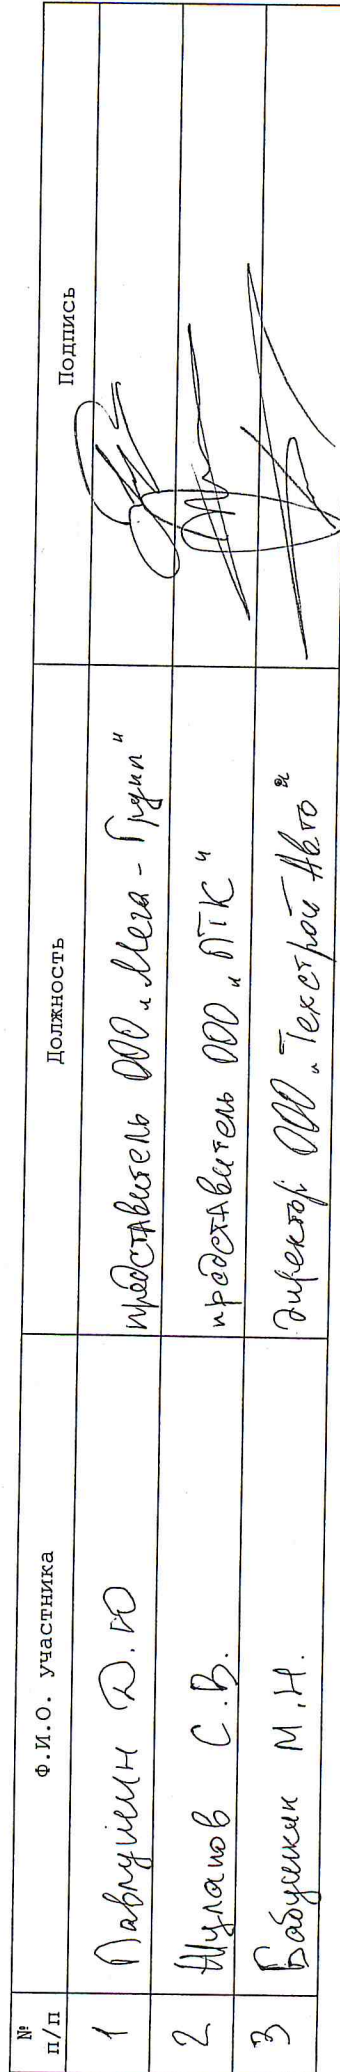 № Ф.И.О. участника Должность Подпись
п/п
1 Павлушин Д.Ю представитель ООО „Мега - Групп"
2 Шулапов С.В. представитель ООО „ПТК"
3 Бабушкин М.Н. директор ООО „Текстрой Авто"